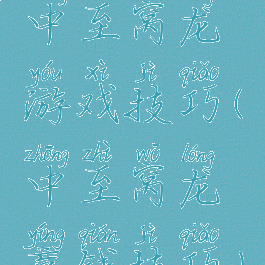 中至窝龙
yóu xì jì qiǎo
游戏技巧(
zhōng zhì wō lóng
中至窝龙
yíng qián jì qiǎo
赢钱技巧)